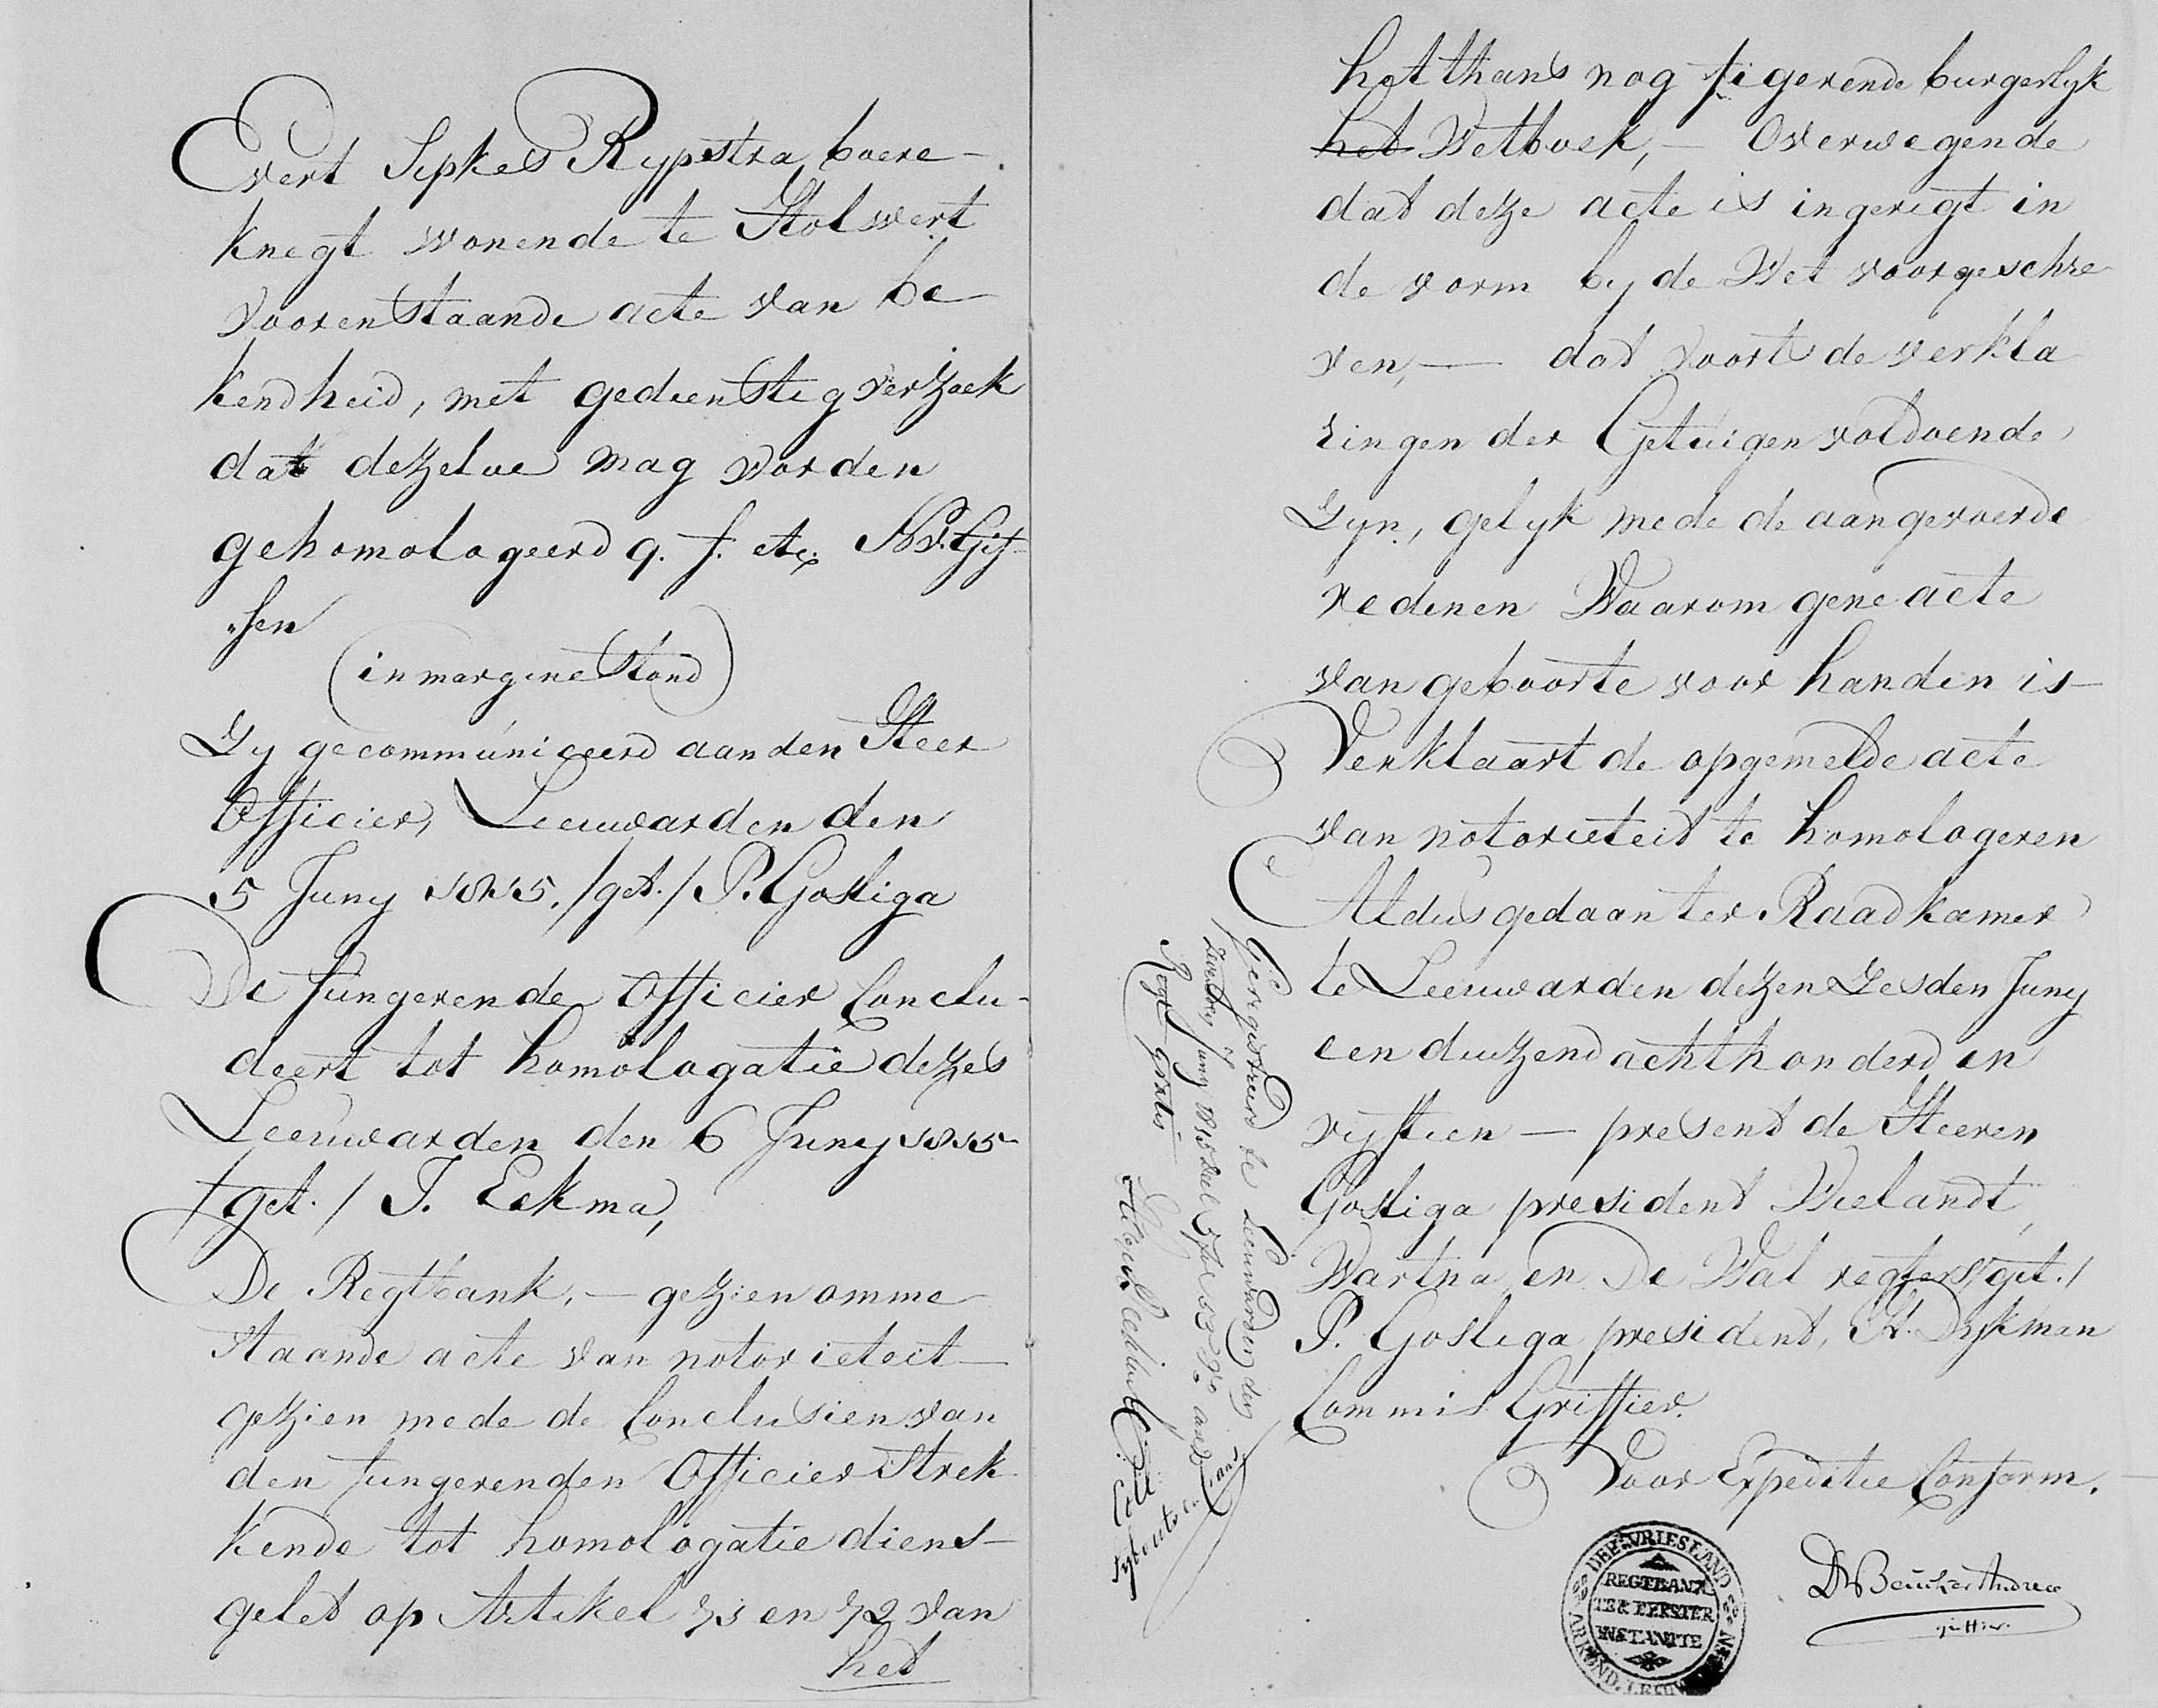 Evert Sipkes Rypstra boere-
knegt wonende te Holwert
voorenstaande acte van be
kendheid, met gedienstig verzoek
dat dezelve mag worden
gehomologeerd q. f. etc.
sen
(in margine stond)
Zy gecommuniceerd aan den Heer
Officier, Leeuwarden den
5 Juny 1815. /get./ P. Gosliga
De fungerende Officier Conclu-
deert tot homologatie dezes
Leeuwarden den 6 Juny 1815
/get./ J. Eekma,
De Regtbank, — gezien omme
staande acte van notorieteit —
gezien mede de Conclusien van
den fungerenden Officier Strek
kende tot homologatie diens —
gelet op Artikel 71 en 72 van
het
het thans nog figerende burgerlyk
het Wetboek, — Overwegende
dat deze acte is ingerigt in
de vorm by de Wet voorgeschre
ven, — dat voorts de verkla
ringen der Getuigen voldoende
Zyn, gelyk mede de aangevoerde
redenen Waarom gene acte
van geboorte voor handen is —
Verklaart de opgemelde acte
van notorieteit te homologeren
Aldus gedaan ter Raadkamer
te Leeuwarden dezen Zesden Juny
een duizend achthonderd en
vyftien — present de Heeren
Gosliga president Wielandt,
Wartna en De Wal regters /get./
P. Gosliga president, H. Dykman
Commis Griffier.
Voor Expeditie Conform.
Geregistreerd te Leeuwarden den
Juny 1815 deel 5 fol 53 Vo
Regt Gratis
ARROND. LEEUW
DER VRIESLAND
REGTBANK
TER EERSTER
INSTANTIE
D Beucker Andreae
griffier